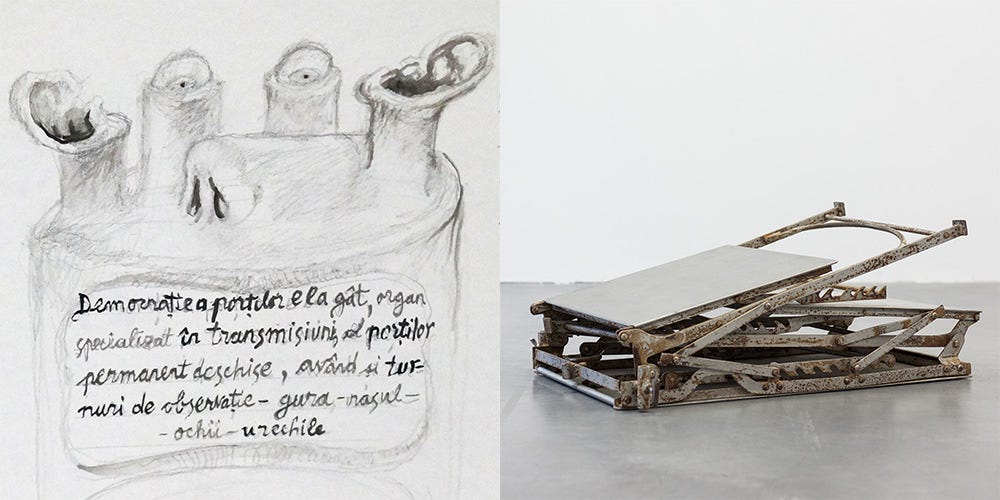 Democrație a porților e la gât, organ
specializat în transmisiuni, al porților
permanent deschise, având și tur=
nuri de observație - gura - nasul -
- ochii - urechile